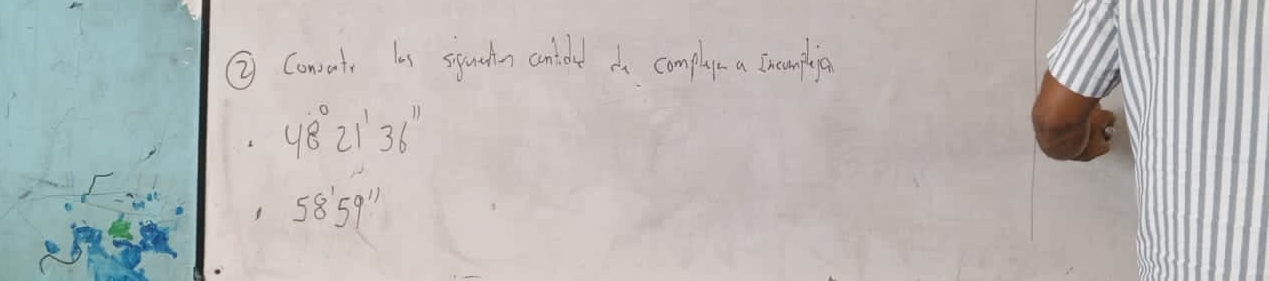 ② Convierte las siguientes cantidad de compleja a Incompleja
. 48° 21' 36"
. 58' 59"